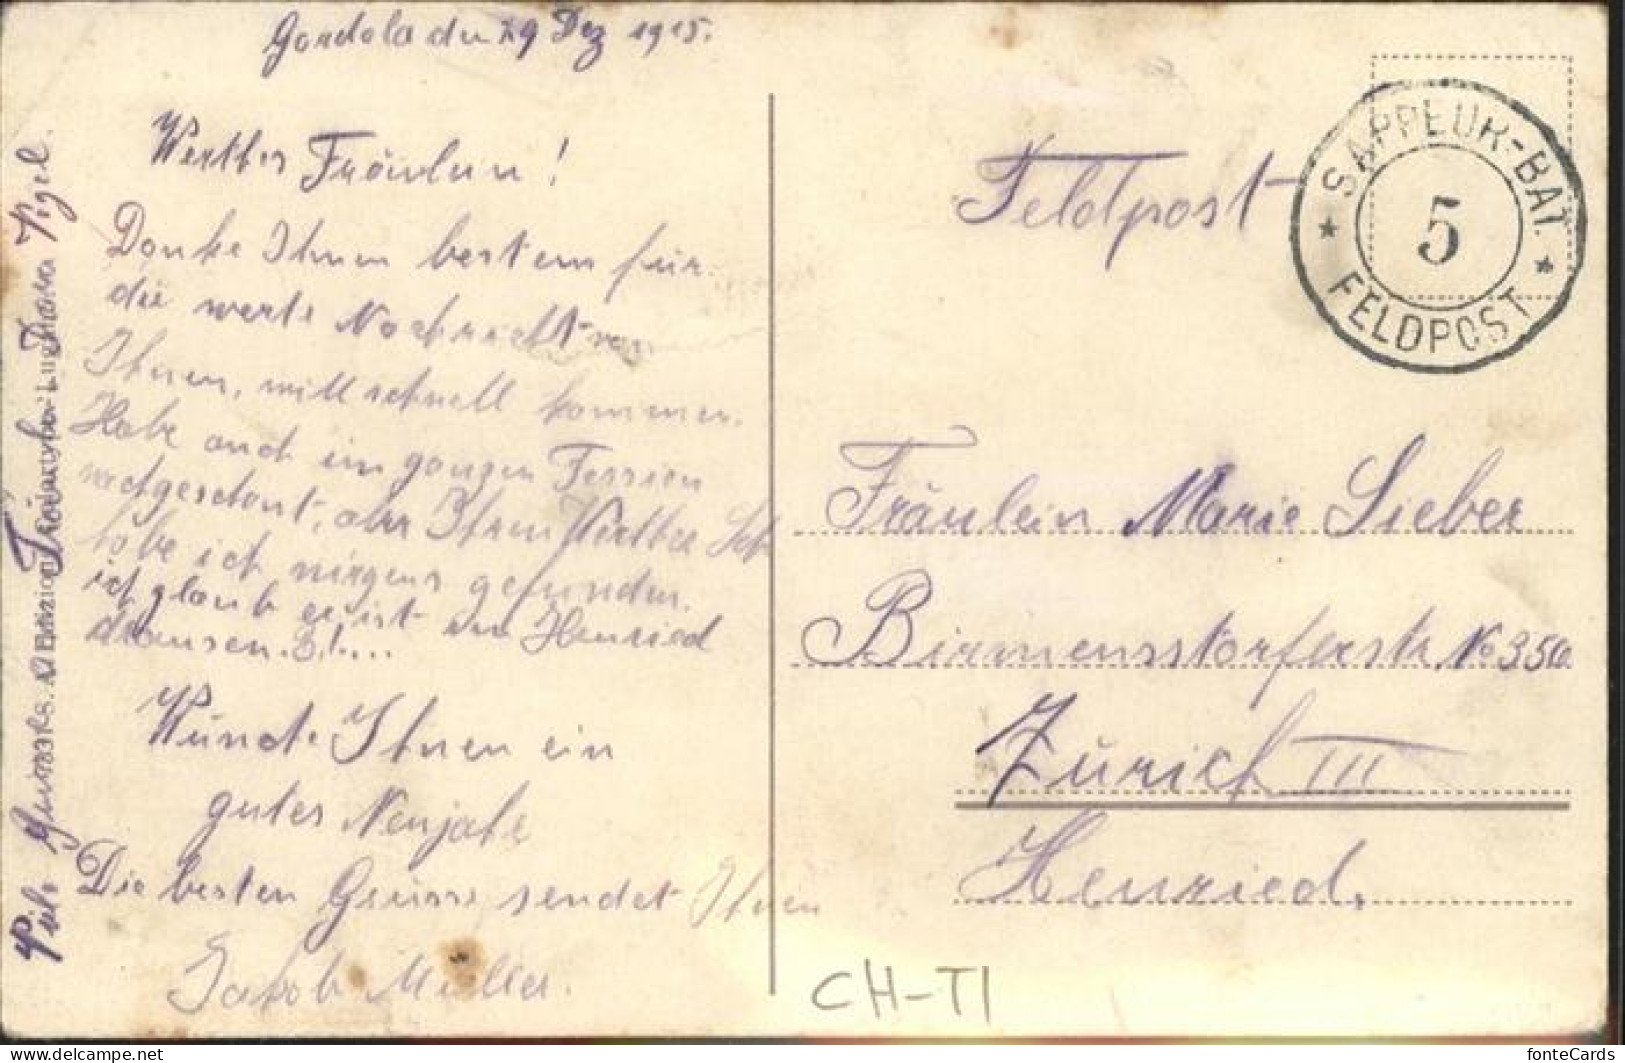 Gordola den 29 Dez 1915.
Werthes Fräulein!
Danke Ihnen bestem für
die werte Nachricht von
Ihnen, will schnell kommen.
Habe auch im ganzen Tessien
nachgeschaut, aber Ihren Werther Sch
habe ich nirgens gefunden.
ich glaub er ist im Heuried
draussen. B.t...
Wünche Ihnen ein
gutes Neujahr
Die besten Grüsse sendet Ihnen
Jakob Müller.
Feldpost
SAPPEUR-BAT.
5
FELDPOST
Fräulein Marie Lieber
Birmensstorferstr. No 350
Zürich III
Heuried.
CH-TI
delcampe.net
fonteCards